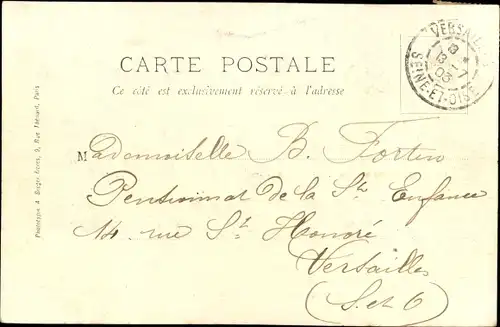 VERSAILLES
8 *
13 - 7
03
SEINE-ET-OISE
CARTE POSTALE
Ce côté est exclusivement réservé à l'adresse
Mademoiselle B. Fortin
Pensionnat de la Ste Enfance
14 rue St Honoré
Versailles
(S. et O)
Phototypie A. Berger frères, 9, Rue Thénard, Paris